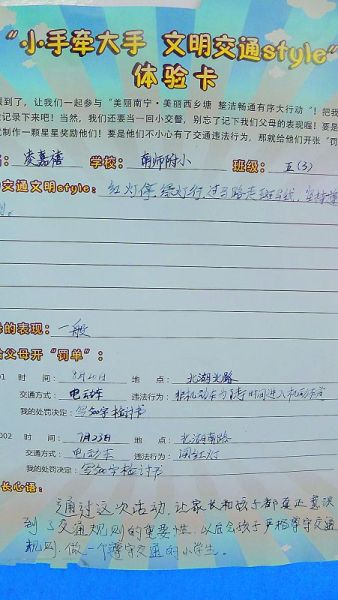 “小手牵大手 文明交通style”
体验卡
到了，让我们一起参与“美丽南宁·美丽西乡塘 整洁畅通有序大行动”！把我
记录下来吧！当然，我们还要当一回小交警，别忘了记下我们父母的表现喔！要是
制作一颗星星奖励他们！要是他们不小心有了交通违法行为，那就给他们开张“罚
学校：南师附小 班级：五(3)
交通文明style：红灯停，绿灯行，过马路走斑马线，
的表现：一般
给父母开“罚单”：
01 时间：8月20日 地点：北湖北路
交通方式：电动车 违法行为：
我的处罚决定：写300字检讨书
002 时间：7月23日 地点：北湖南路
交通方式：电动车 违法行为：闯红灯
我的处罚决定：写200字检讨书
长心语：
通过这次活动，让家长和孩子都真正意识
到了交通规则的重要性，以后会孩子严格遵守交通
规则，做一个遵守交通的小学生。